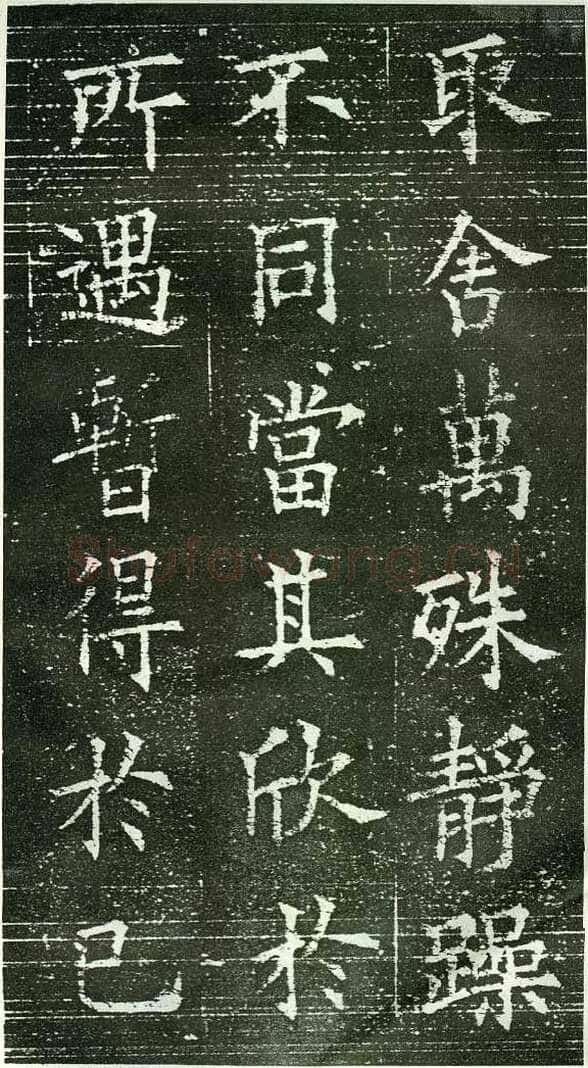 取舍萬殊靜躁
不同當其欣於
所遇暫得於己
Shufawang.CN